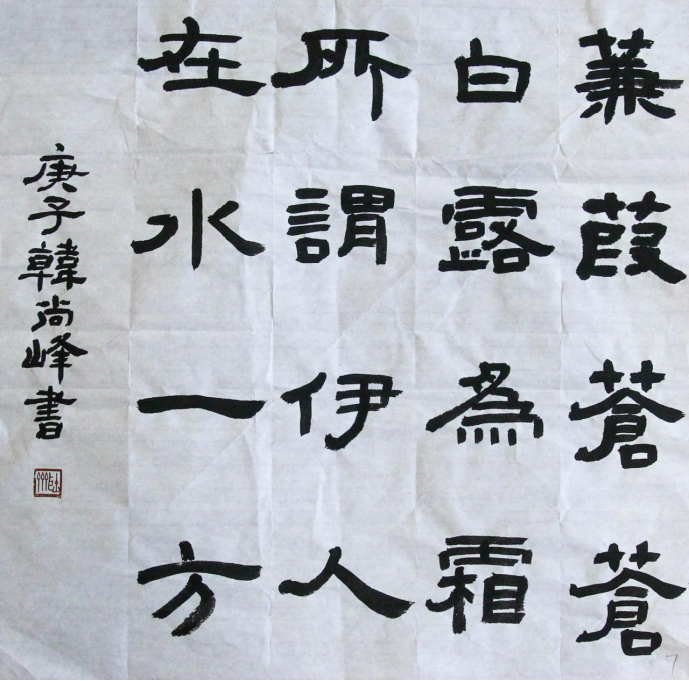 蒹葭蒼蒼
白露為霜
所謂伊人
在水一方
庚子韓尚峰書